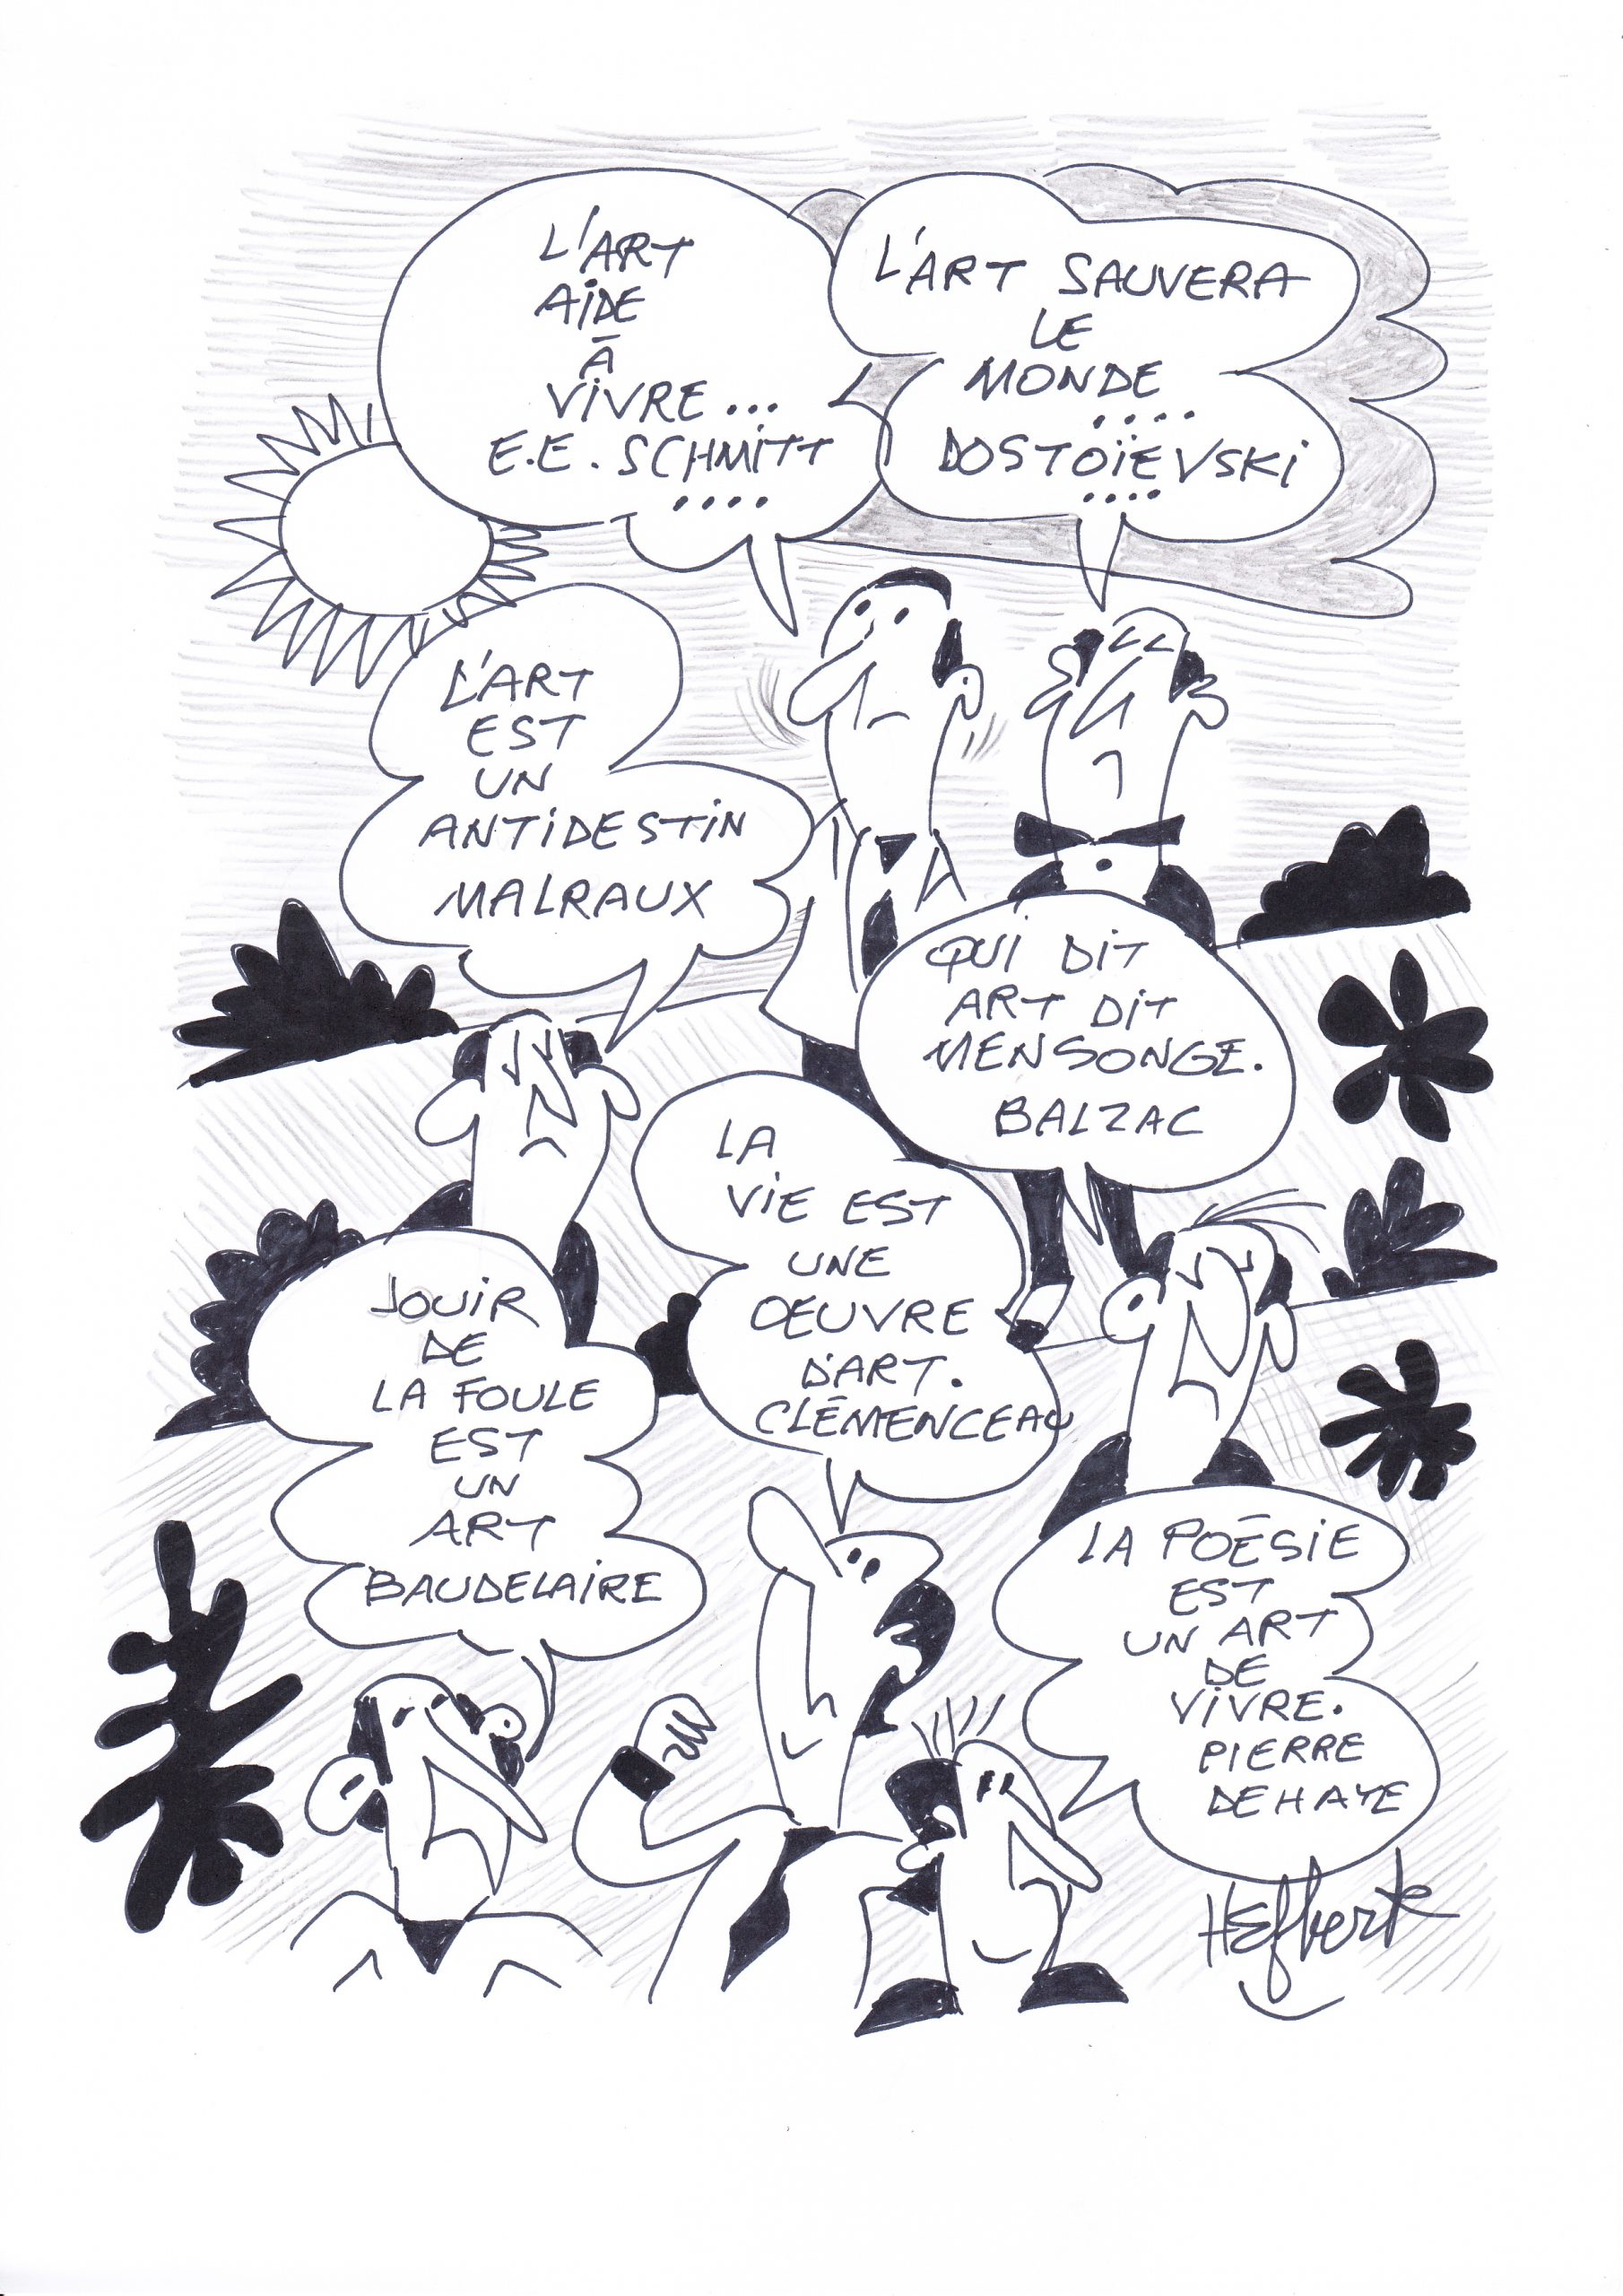 L'ART
AIDE
À
VIVRE...
E.E. SCHMITT
....
L'ART SAUVERA
LE
MONDE
....
DOSTOÏEVSKI
....
L'ART
EST
UN
ANTIDESTIN
MALRAUX
QUI DIT
ART DIT
MENSONGE.
BALZAC
LA
VIE EST
UNE
ŒUVRE
D'ART.
CLÉMENCEAU
JOUIR
DE
LA FOULE
EST
UN
ART
BAUDELAIRE
LA POÉSIE
EST
UN ART
DE
VIVRE.
PIERRE
DEHAYE